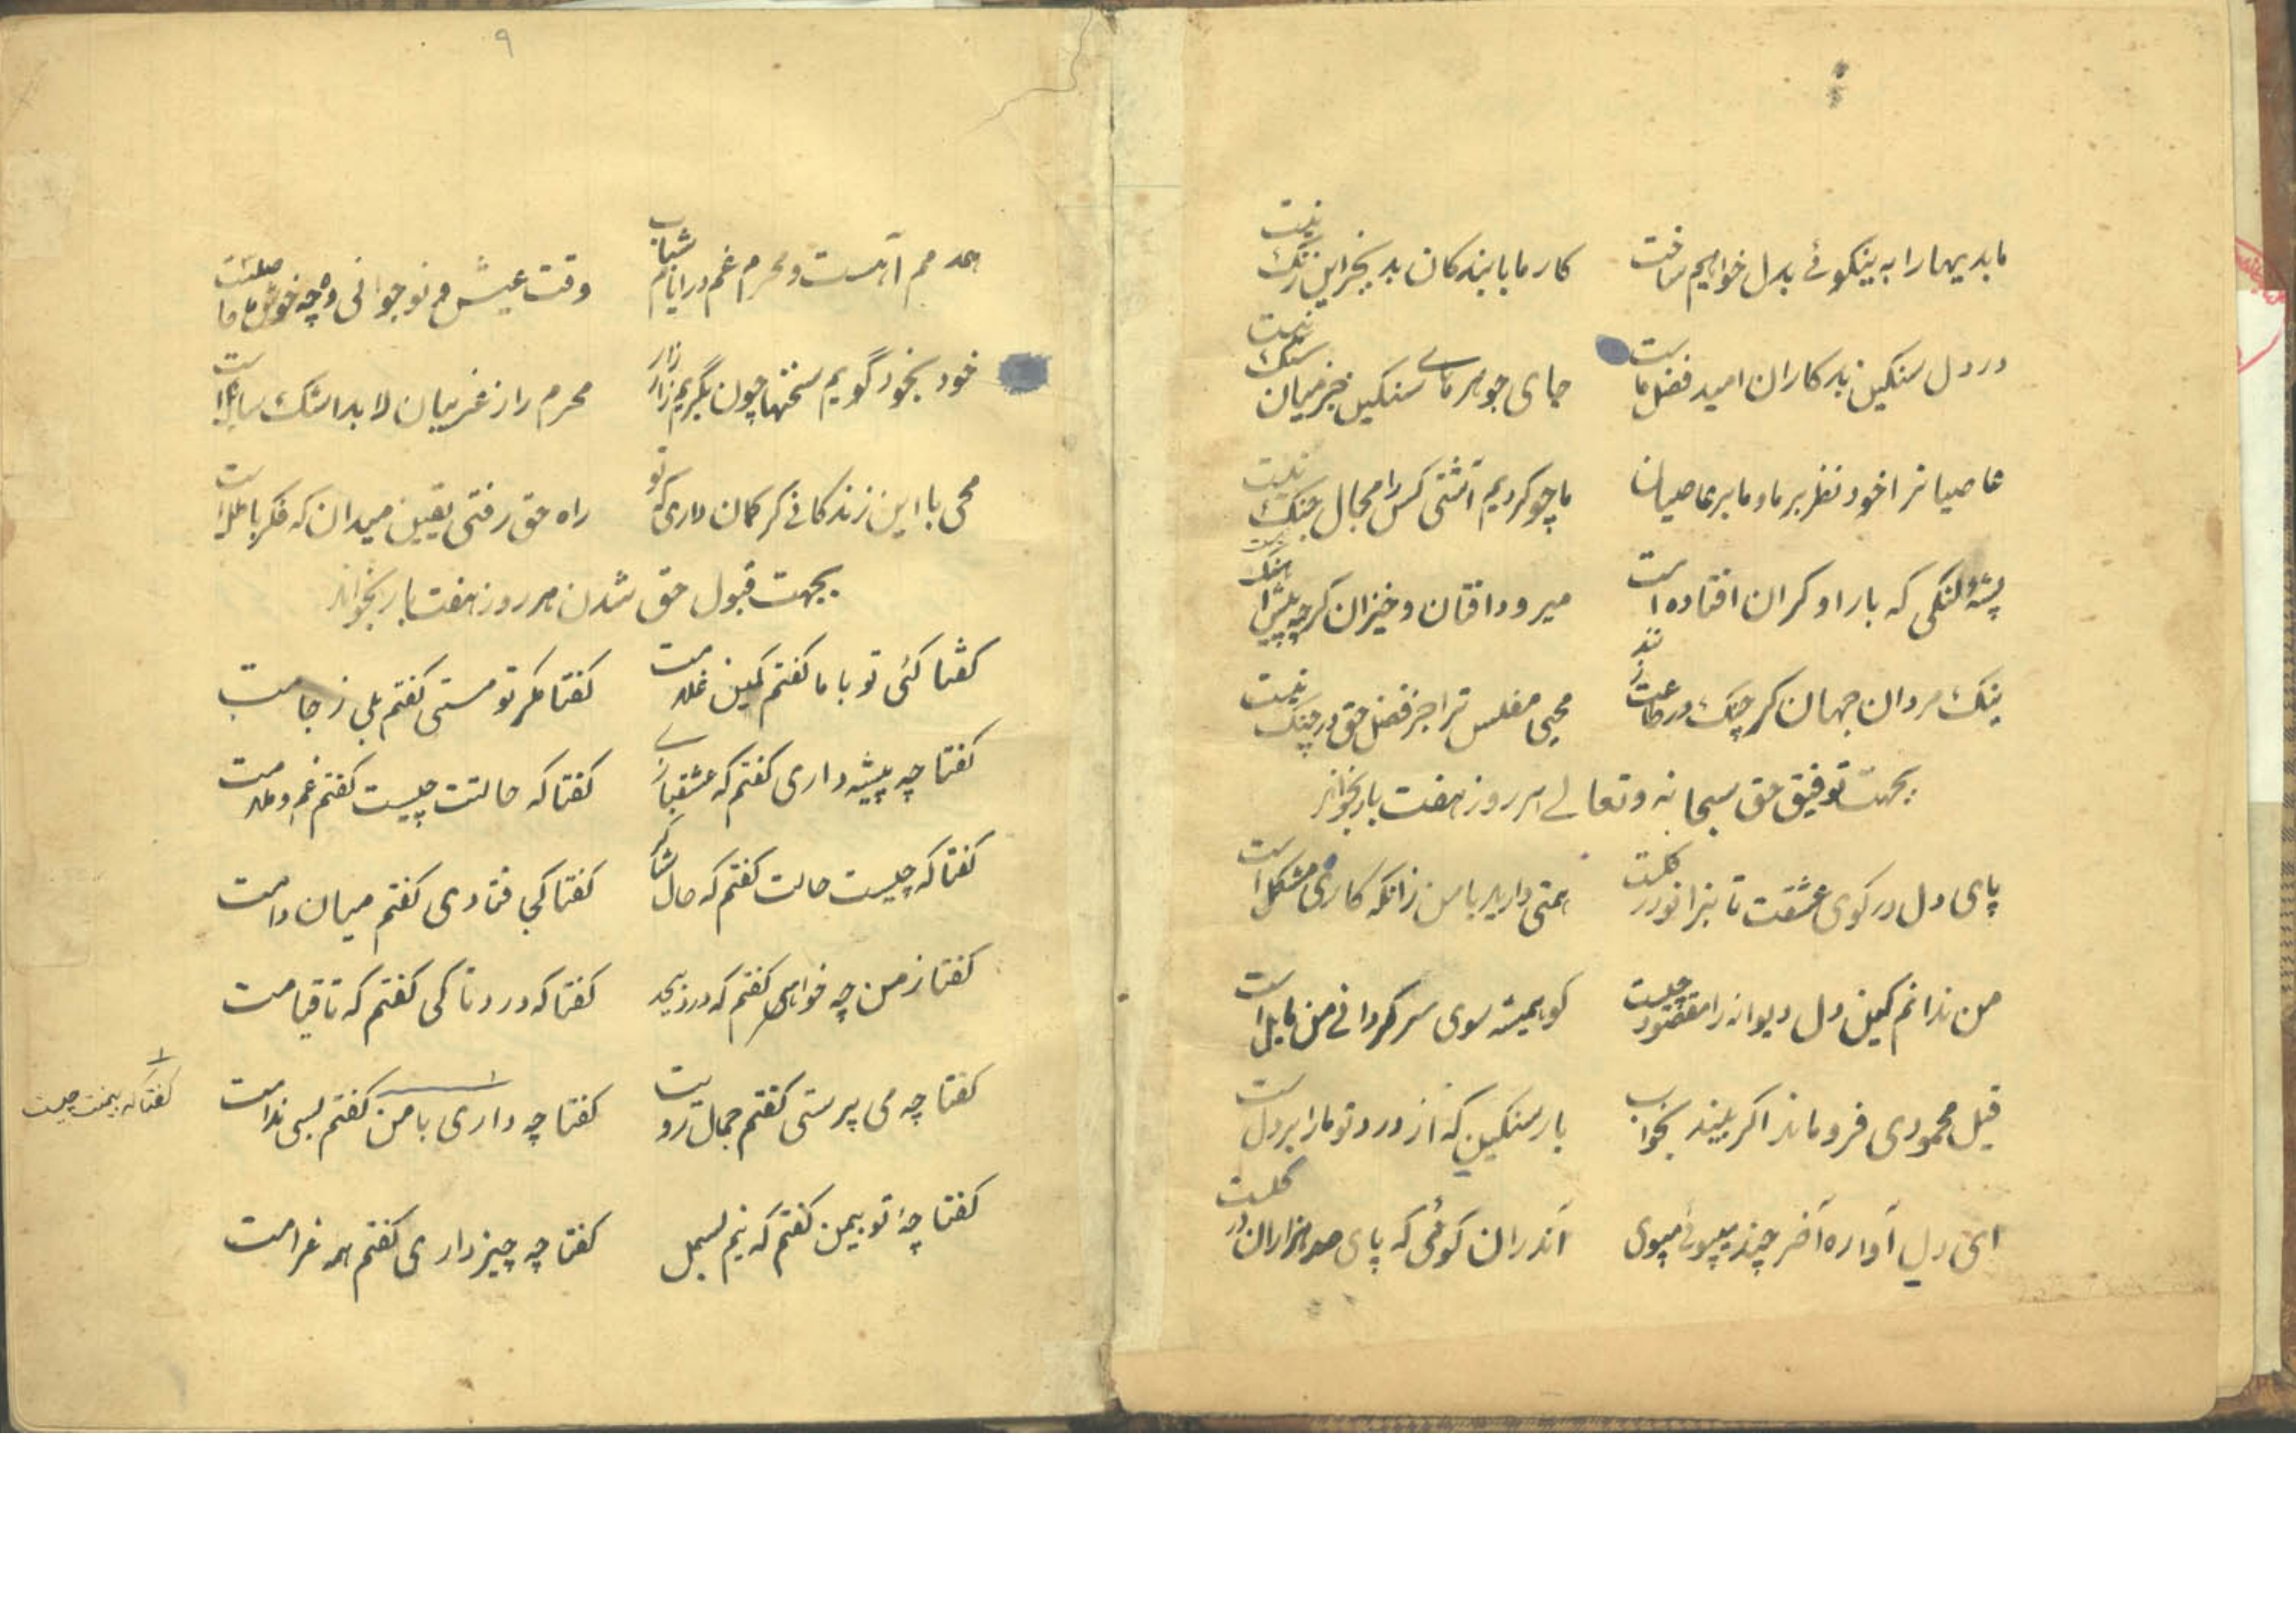 ما بدیها را به نیکوئے بدل خواهیم ساخت کار ما با بندکان بد بجز این رنک نیست
در دل سنکین بدکاران امید فضل ماست جای جوهرهاے سنکین جز میان سنک نیست
عاصیانرا خود نظر بر ما و ما بر عاصیان ما چو کردیم آشتی کس را مجال جنک نیست
پشهٔ لنکی که بار او کران افتاده است میرود افتان و خیزان کرچه پیش
نیک مردان جهان کر چنک در طاعت زنند محیی مفلس ترا جز فضل حق در چنک نیست
بجهت توفیق حق سبحانه و تعالے هر روز هفت بار بخواند
پای دل در کوی عشقت تا بزانو در کلست همتی دارید با من زانکه کاری مشکل است
من ندانم کین دل دیوانه را مقصود چیست کو همیشه سوی سرکردانے من مایل است
فیل محمودی فرو ماند اکر بیند بخواب بار سنکین که از درد تو مارا بر دل است
ای دل آواره آخر چند میپوئے میپوی اندران کوئی که پای صد هزاران در کلست
۹
همدمم آهست و محرم غم در ایام شباب وقت عیش و نوجوانی وه چه خوش
خود بخود گویم سخنها چون بگریم زار زار محرم راز غریبان لابد اشک سایلست
محی با این زندکانے کر کمان داری که تو راه حق رفتی یقین میدان که فکر باطل است
بجهت قبول حق شدن هر روز هفت بار بخواند
کفتا کئی تو با ما کفتم کمین غلامت کفتا مکر تو مستی کفتم بلی ز جامت
کفتا چه پیشه داری کفتم که عشقبازے کفتا که حالتت چیست کفتم غم و ملامت
کفتا که چیست حالت کفتم که حال شاکر کفتا کجا فتادی کفتم میان دامت
کفتا ز من چه خواهی کفتم که درد بیحد کفتا که درد تا کی کفتم که تا قیامت
کفتا چه می پرستی کفتم جمال رویت کفتا چه داری با من کفتم بسی ندامت
کفتا که بیمنت چیست
کفتا چهٔ تو بیمن کفتم که نیم بسمل کفتا چه چیز داری کفتم همه غرامت